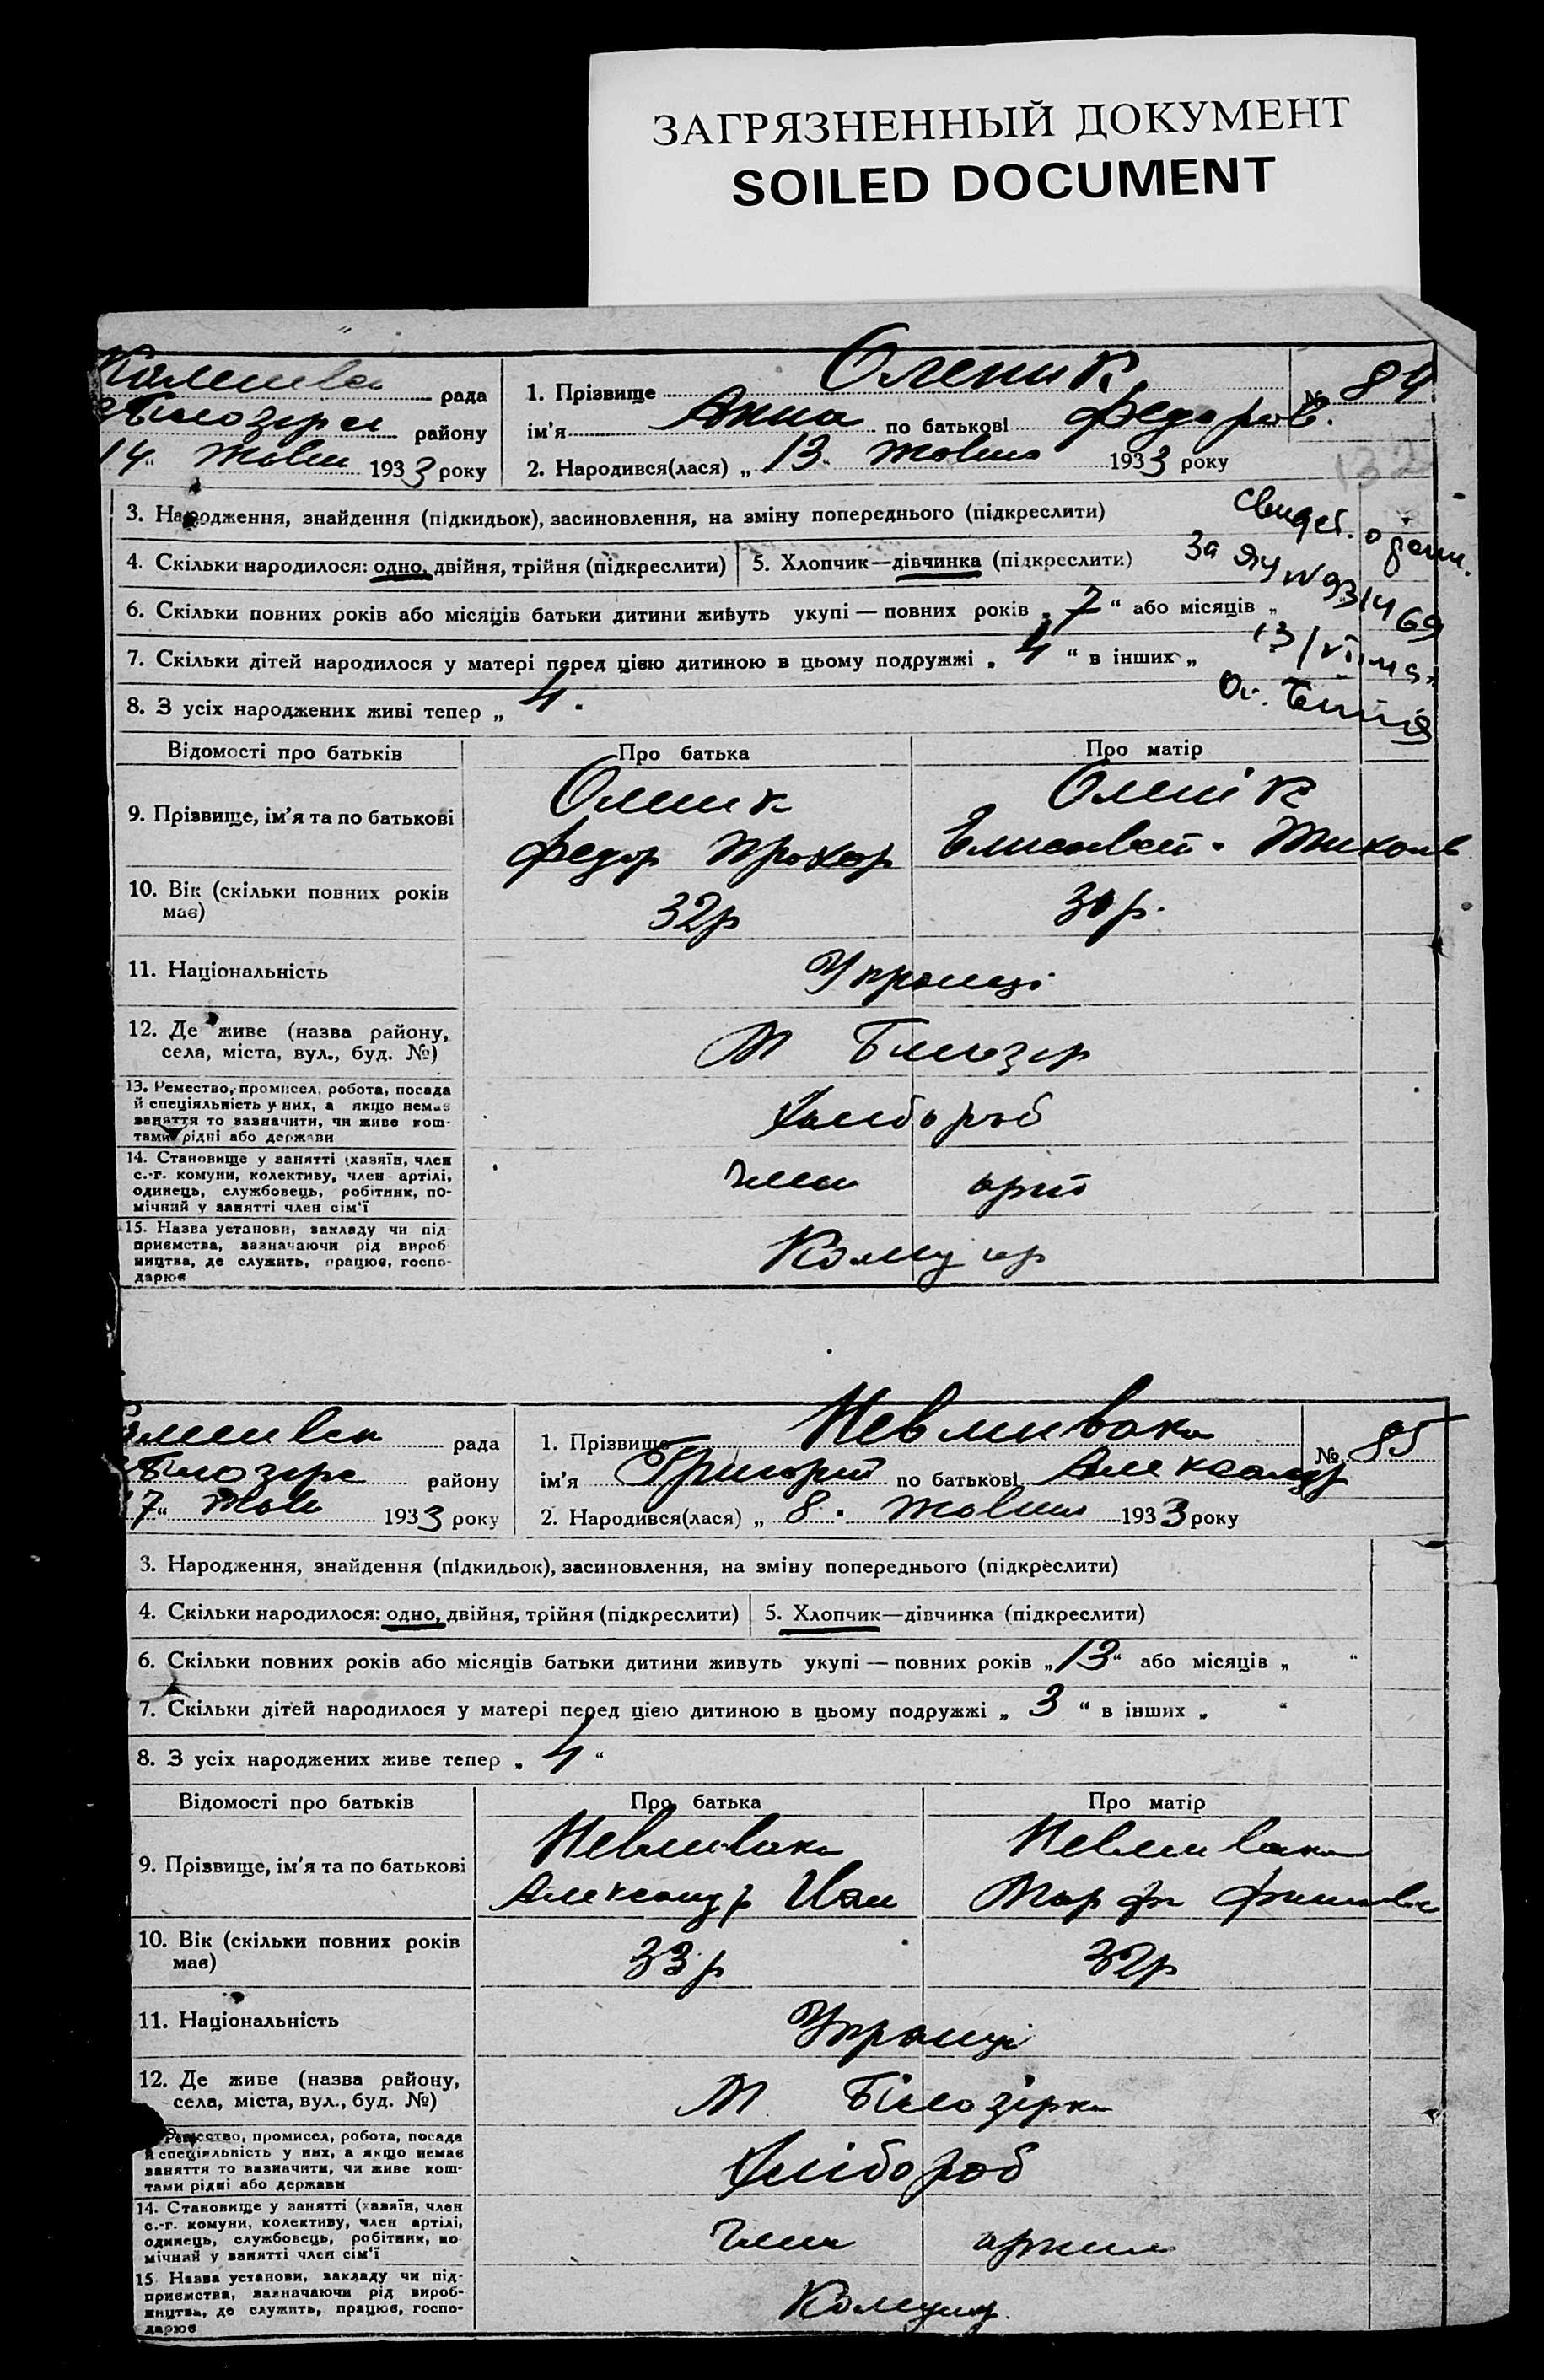 ЗАГРЯЗНЕННЫЙ ДОКУМЕНТ
SOILED DOCUMENT
рада
1. Прізвище Оленик
№ 84
Білозерсь району
ім'я Анна по батькові Федоров.
14 Жовтн 1933 року
2. Народився(лася) „ 13 " Жовтн 1933 року
132
3. Народження, знайдення (підкидьок), засиновлення, на зміну попереднього (підкреслити)
Свидет.
4. Скільки народилося: одно, двійня, трійня (підкреслити)
5. Хлопчик—дівчинка (підкреслити)
За ЯЧ № 931469
6. Скільки повних років або місяців батьки дитини живуть укупі — повних років „ 7 “ або місяців „
7. Скільки дітей народилося у матері перед цією дитиною в цьому подружжі „ 4 “ в інших „
8. З усіх народжених живі тепер „ 4 .
Відомості про батьків
Про батька
Про матір
9. Прізвище, ім'я та по батькові
Оленик
Оленік
Федор Прохор
Елисавет.
10. Вік (скільки повних років має)
32р
30 р.
11. Національність
Українці
12. Де живе (назва району, села, міста, вул., буд. №)
М Білозір
13. Ремество, промисел, робота, посада
й спеціяльність у них, а якщо немає
заняття то зазначити, чи живе кош-
тами рідні або держави
Хлібороб
14. Становище у занятті (хазяїн, член
с.-г. комуни, колективу, член артілі,
одинець, службовець, робітник, по-
мічний у занятті член сім'ї
член арт
15. Назва установи, закладу чи під-
приємства, зазначаючи рід вироб
ництва, де служить, працює, госпо-
дарює
рада
1. Прізвище Невмивака
№ 85
Білозерс району
ім'я Григорій по батькові Александр
17 “ Жовт 1933 року
2. Народився(лася) „ 8 . Жовтн 1933 року
3. Народження, знайдення (підкидьок), засиновлення, на зміну попереднього (підкреслити)
4. Скільки народилося: одно, двійня, трійня (підкреслити)
5. Хлопчик—дівчинка (підкреслити)
6. Скільки повних років або місяців батьки дитини живуть укупі — повних років „ 13 “ або місяців „ “
7. Скільки дітей народилося у матері перед цією дитиною в цьому подружжі „ 3 “ в інших „ “
8. З усіх народжених живе тепер „ 4 “
Відомості про батьків
Про батька
Про матір
9. Прізвище, ім'я та по батькові
Невмивака
Невмивака
Александр Іван
Марфа
10. Вік (скільки повних років має)
33 р
32р
11. Національність
Українці
12. Де живе (назва району, села, міста, вул., буд. №)
М Білозірка
Ремество, промисел, робота, посада
й спеціяльність у них, а якщо немає
заняття то зазначити, чи живе кош-
тами рідні або держави
Хлібороб
14. Становище у занятті (хазяїн, член
с.-г. комуни, колективу, член артілі,
одинець, службовець, робітник, по
мічний у занятті член сім'ї
член артил
15 Назва установи, закладу чи під-
приємства, зазначаючи рід вироб-
ництва, де служить, працює, госпо-
дарює